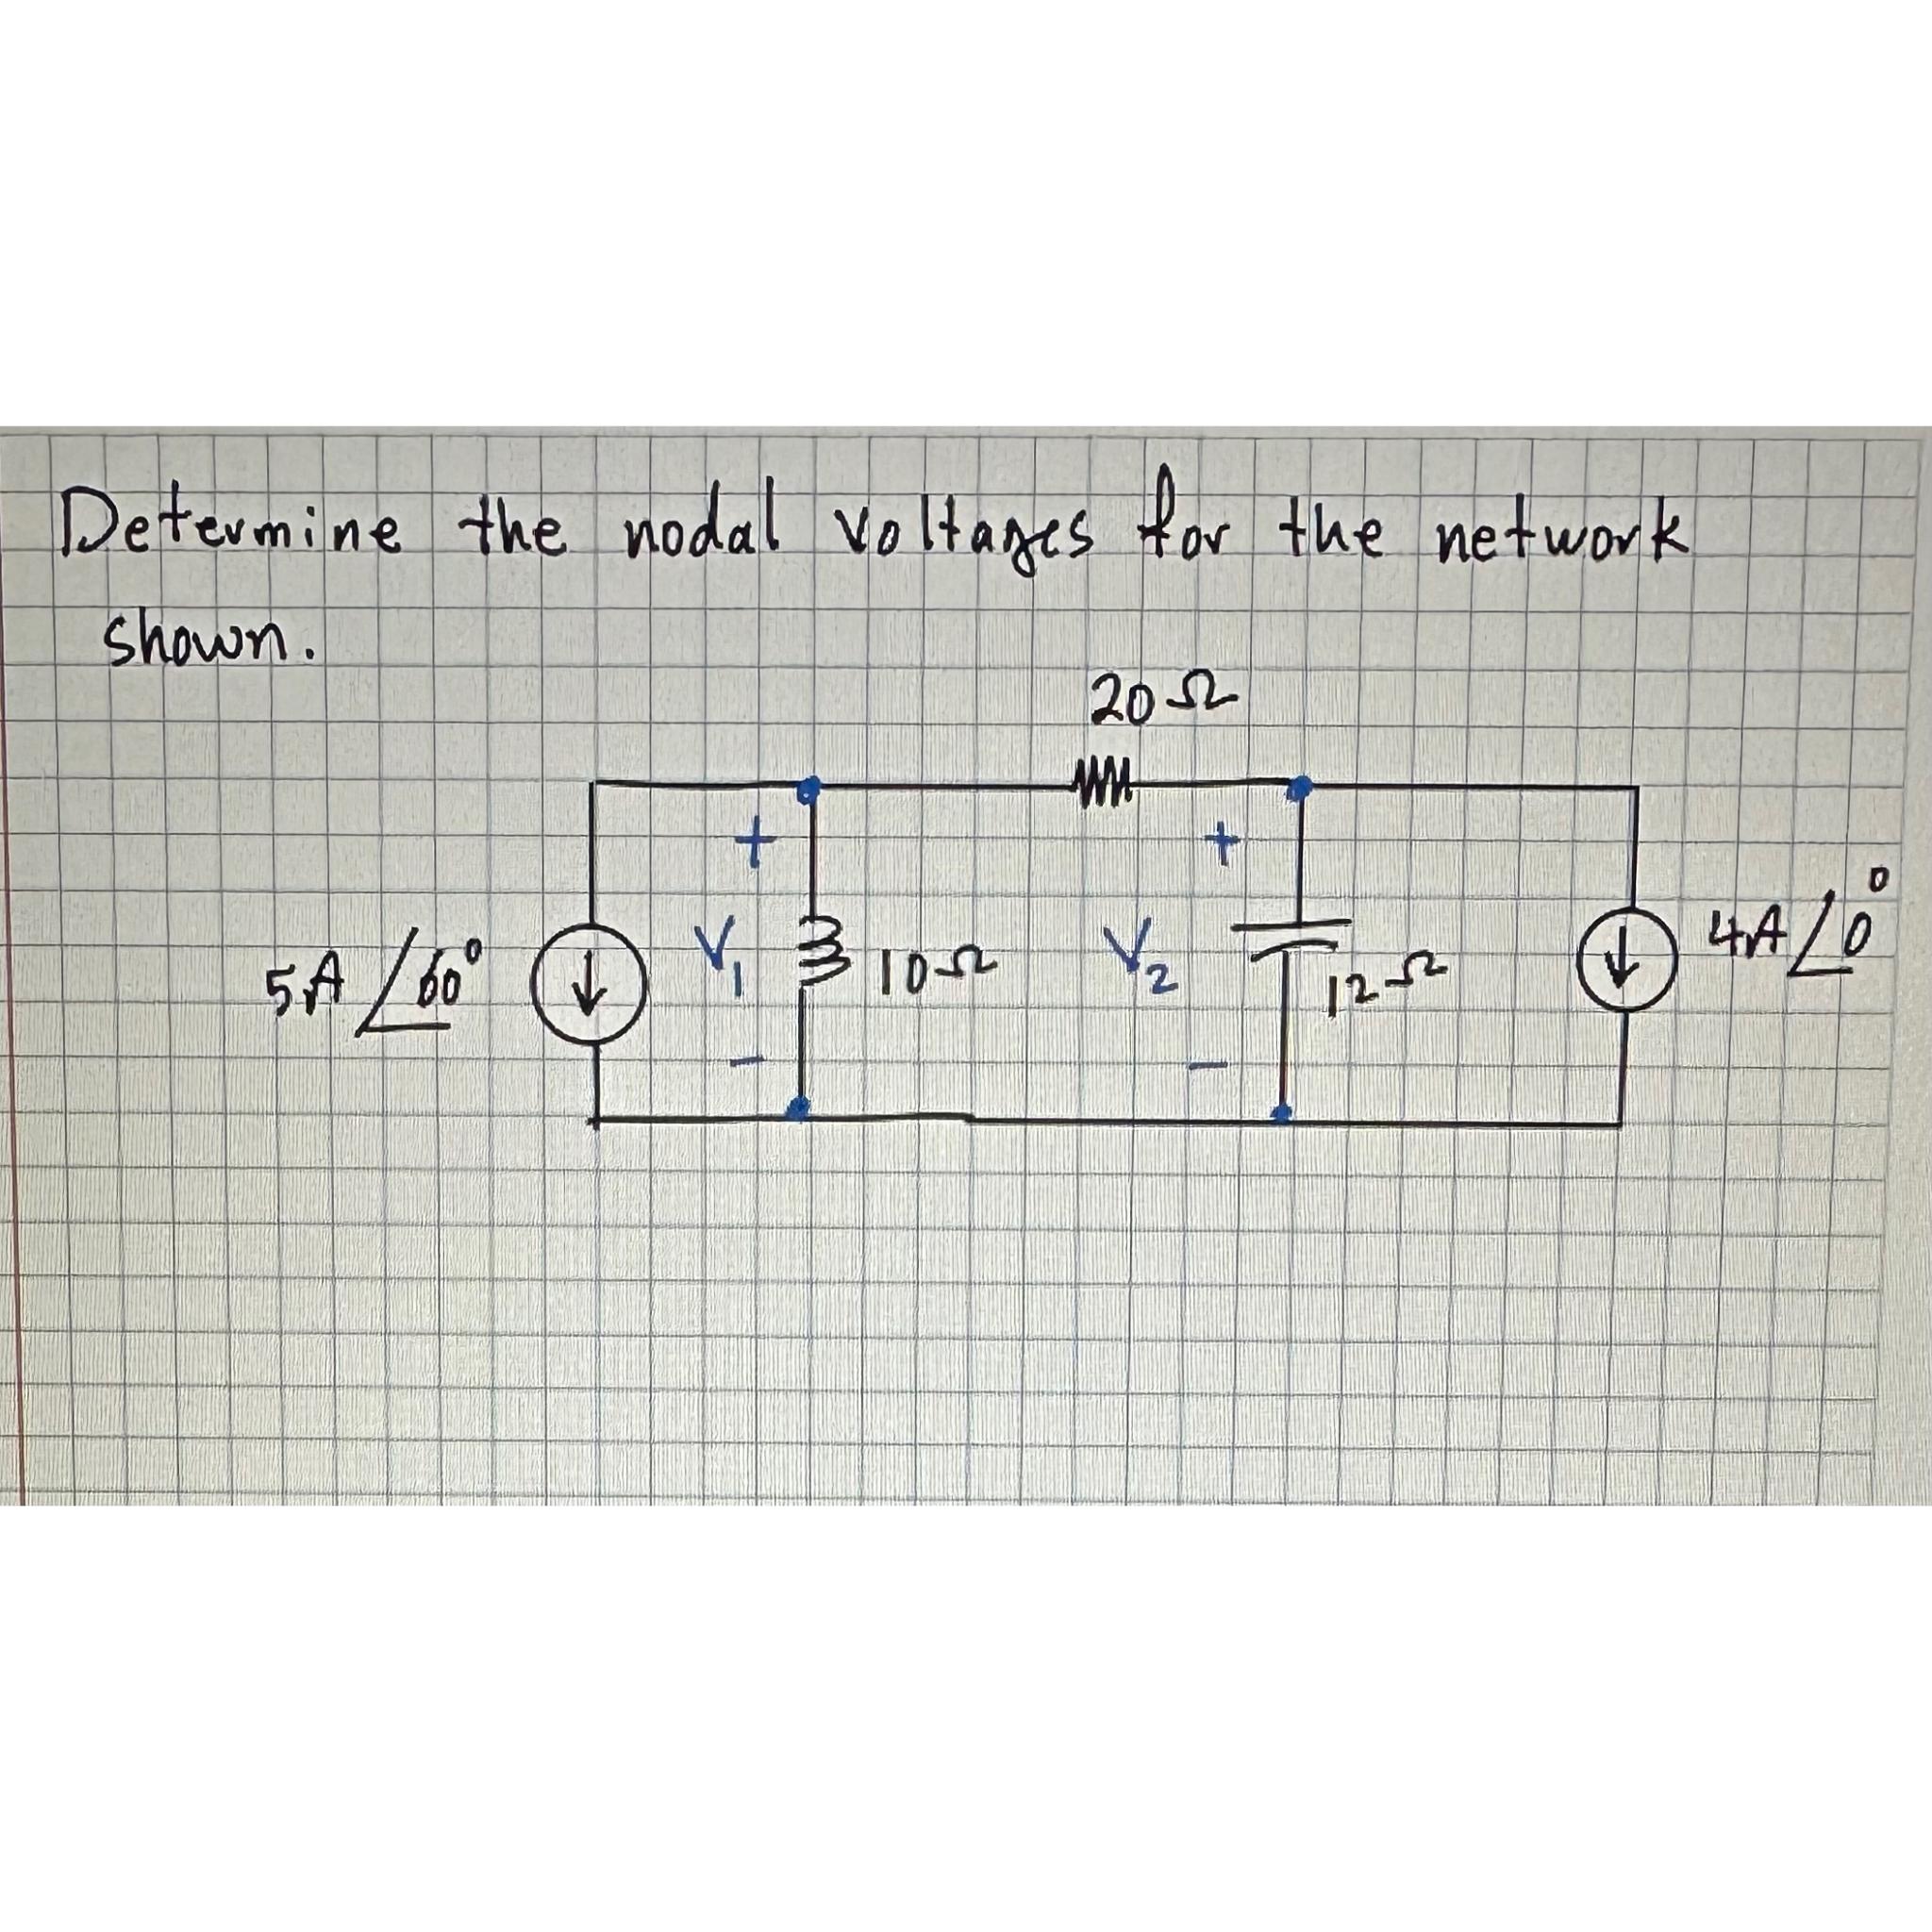 Determine the nodal voltages for the network
shown.
20Ω
+
+
5A ∠60°
V₁
10Ω
V₂
12Ω
4A ∠0°
−
−